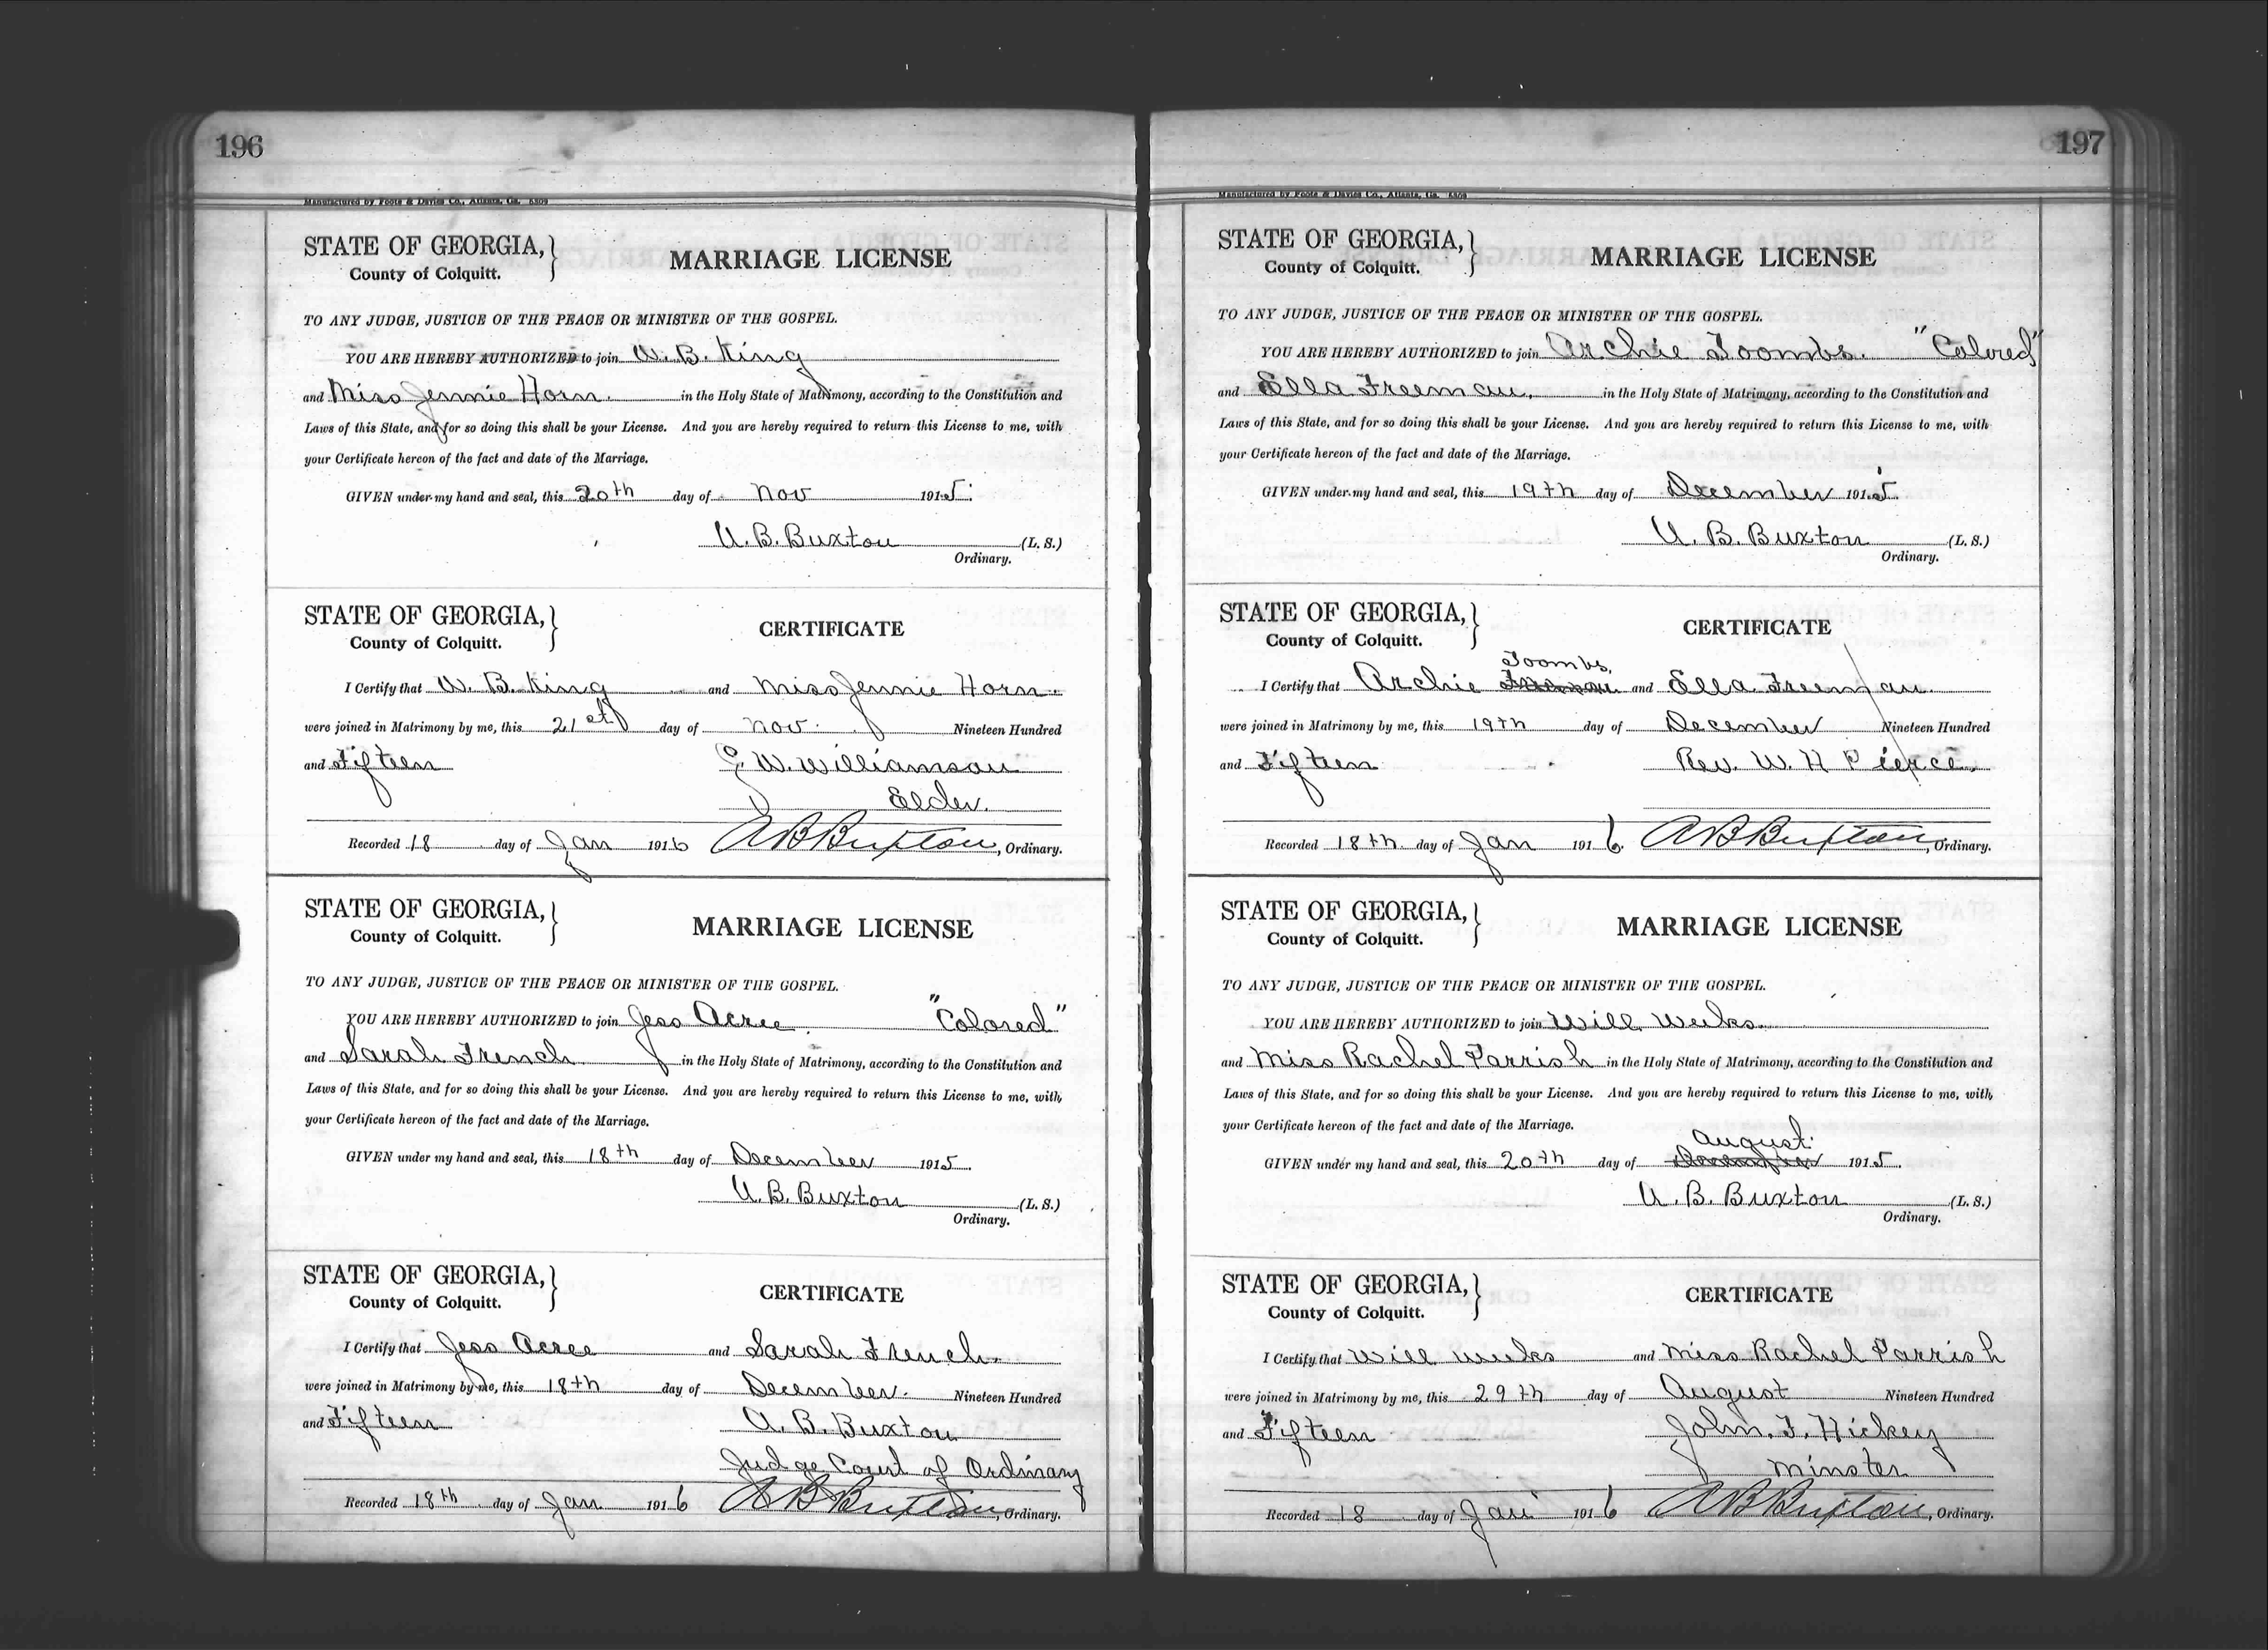 196
Manufactured by Foote & Davies Co., Atlanta, Ga. 6809
STATE OF GEORGIA,
County of Colquitt.
MARRIAGE LICENSE
TO ANY JUDGE, JUSTICE OF THE PEACE OR MINISTER OF THE GOSPEL.
YOU ARE HEREBY AUTHORIZED to join W. B. King
and Miss Jennie Horn. in the Holy State of Matrimony, according to the Constitution and
Laws of this State, and for so doing this shall be your License. And you are hereby required to return this License to me, with
your Certificate hereon of the fact and date of the Marriage.
GIVEN under my hand and seal, this 20th day of Nov 1915.
A. B. Buxton (L. S.)
Ordinary.
STATE OF GEORGIA,
County of Colquitt.
CERTIFICATE
I Certify that W. B. King and Miss Jennie Horn.
were joined in Matrimony by me, this 21st day of Nov. Nineteen Hundred
and Fifteen W. Williamson
Elder.
Recorded 18 day of Jan 1916 A B Buxton, Ordinary.
STATE OF GEORGIA,
County of Colquitt.
MARRIAGE LICENSE
TO ANY JUDGE, JUSTICE OF THE PEACE OR MINISTER OF THE GOSPEL.
YOU ARE HEREBY AUTHORIZED to join Jess Acree "Colored"
and Sarah French in the Holy State of Matrimony, according to the Constitution and
Laws of this State, and for so doing this shall be your License. And you are hereby required to return this License to me, with
your Certificate hereon of the fact and date of the Marriage.
GIVEN under my hand and seal, this 18th day of December 1915.
A. B. Buxton (L. S.)
Ordinary.
STATE OF GEORGIA,
County of Colquitt.
CERTIFICATE
I Certify that Jess Acree and Sarah French.
were joined in Matrimony by me, this 18th day of December. Nineteen Hundred
and Fifteen A. B. Buxton
Judge Court of Ordinary
Recorded 18th day of Jan 1916 A B Buxton, Ordinary.
197
Manufactured by Foote & Davies Co., Atlanta, Ga. 6809
STATE OF GEORGIA,
County of Colquitt.
MARRIAGE LICENSE
TO ANY JUDGE, JUSTICE OF THE PEACE OR MINISTER OF THE GOSPEL.
YOU ARE HEREBY AUTHORIZED to join Archie Toombs. "Colored"
and Ella Freeman. in the Holy State of Matrimony, according to the Constitution and
Laws of this State, and for so doing this shall be your License. And you are hereby required to return this License to me, with
your Certificate hereon of the fact and date of the Marriage.
GIVEN under my hand and seal, this 19th day of December 1915.
A. B. Buxton (L. S.)
Ordinary.
STATE OF GEORGIA,
County of Colquitt.
CERTIFICATE
Toombs.
I Certify that Archie Freeman and Ella Freeman.
were joined in Matrimony by me, this 19th day of December Nineteen Hundred
and Fifteen Rev. W. H Pierce.
Recorded 18th. day of Jan 1916. A B Buxton, Ordinary.
STATE OF GEORGIA,
County of Colquitt.
MARRIAGE LICENSE
TO ANY JUDGE, JUSTICE OF THE PEACE OR MINISTER OF THE GOSPEL.
YOU ARE HEREBY AUTHORIZED to join Will Weeks.
and Miss Rachel Parrish in the Holy State of Matrimony, according to the Constitution and
Laws of this State, and for so doing this shall be your License. And you are hereby required to return this License to me, with
your Certificate hereon of the fact and date of the Marriage.
August.
GIVEN under my hand and seal, this 20th day of December 1915.
A. B. Buxton (L. S.)
Ordinary.
STATE OF GEORGIA,
County of Colquitt.
CERTIFICATE
I Certify that Will Weeks and Miss Rachel Parrish
were joined in Matrimony by me, this 29th day of August Nineteen Hundred
and Fifteen John. F. Hickey
Minster
Recorded 18 day of Jan 1916 A B Buxton, Ordinary.